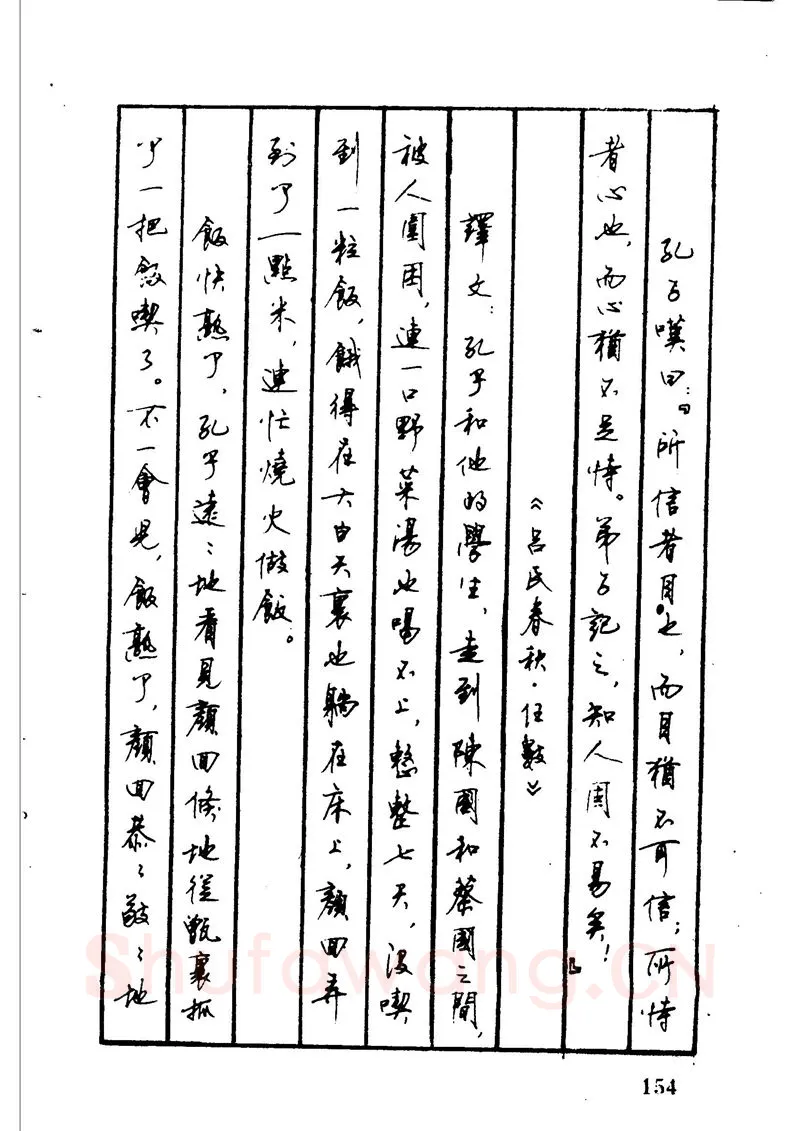 孔子嘆曰:"所信者目也,而目猶不可信;所恃
者心也,而心猶不足恃。弟子記之,知人固不易矣!"
《吕氏春秋·任數》
譯文:孔子和他的學生,走到陳國和蔡國之間,
被人圍困,連一口野菜湯也喝不上,整整七天,没喫
到一粒飯,餓得在大白天裏也躺在床上,顏回弄
到了一點米,連忙燒火做飯。
飯快熟了,孔子遠遠地看見顏回倏地從甑裏抓
了一把飯喫了。不一會兒,飯熟了,顏回恭恭敬敬地
154
Shufawang.CN